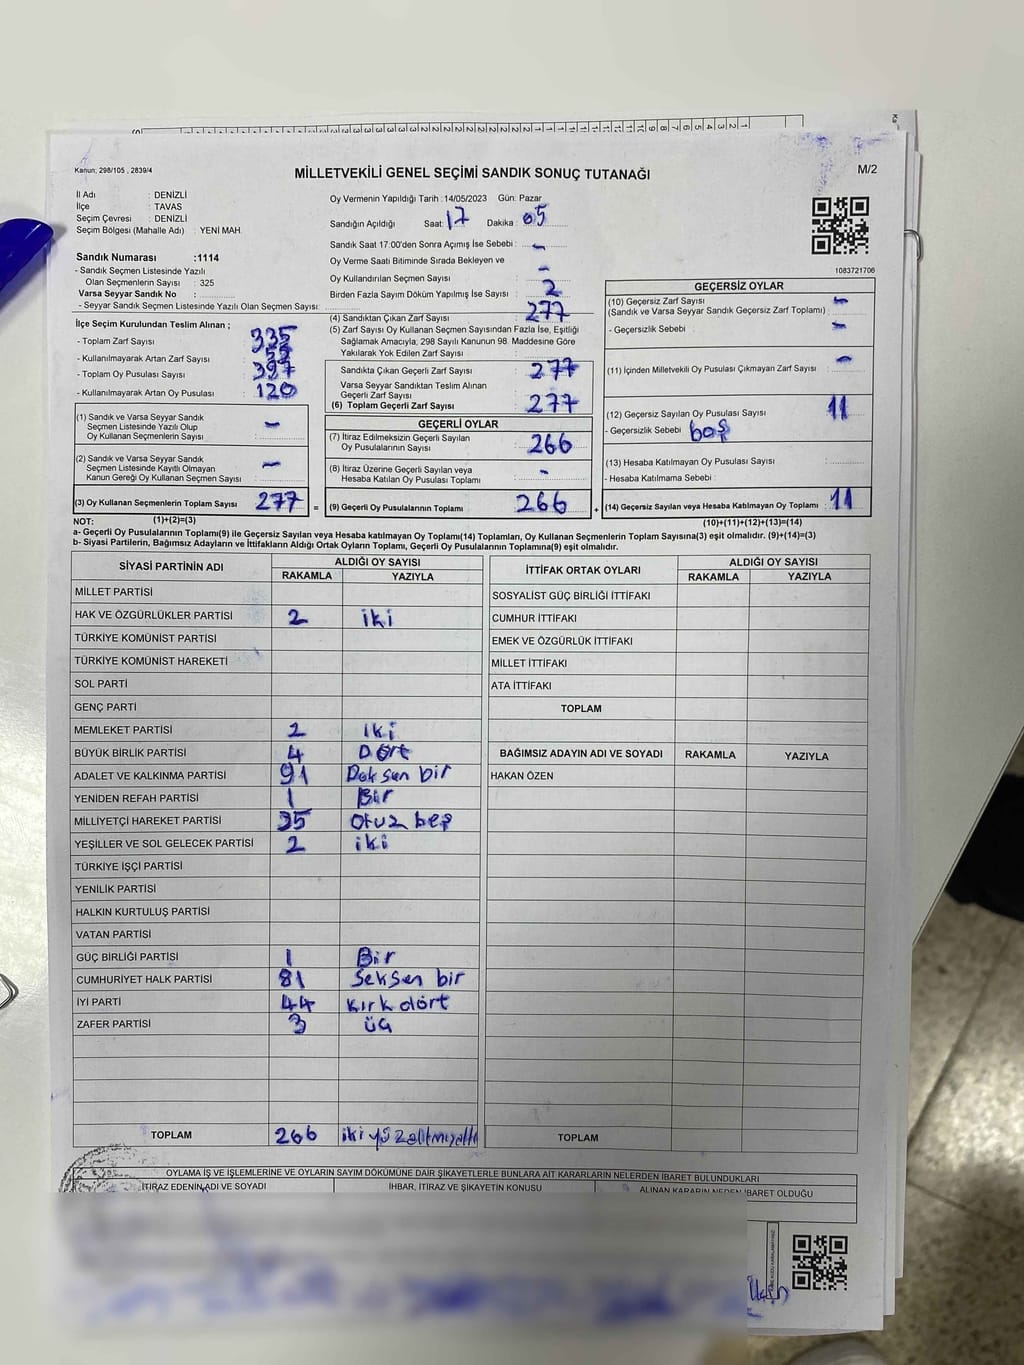 Kanun; 298/105 , 2839/4
MİLLETVEKİLİ GENEL SEÇİMİ SANDIK SONUÇ TUTANAĞI
M/2
İl Adı : DENİZLİ
İlçe : TAVAS
Seçim Çevresi : DENİZLİ
Seçim Bölgesi (Mahalle Adı) : YENİ MAH.
Sandık Numarası :1114
- Sandık Seçmen Listesinde Yazılı
Olan Seçmenlerin Sayısı : 325
Varsa Seyyar Sandık No :
- Seyyar Sandık Seçmen Listesinde Yazılı Olan Seçmen Sayısı:
İlçe Seçim Kurulundan Teslim Alınan ;
- Toplam Zarf Sayısı : 335
- Kullanılmayarak Artan Zarf Sayısı :
- Toplam Oy Pusulası Sayısı : 397
- Kullanılmayarak Artan Oy Pusulası : 120
(1) Sandık ve Varsa Seyyar Sandık
Seçmen Listesinde Yazılı Olup
Oy Kullanan Seçmenlerin Sayısı : -
(2) Sandık ve Varsa Seyyar Sandık
Seçmen Listesinde Kayıtlı Olmayan
Kanun Gereği Oy Kullanan Seçmen Sayısı : -
(3) Oy Kullanan Seçmenlerin Toplam Sayısı : 277
(1)+(2)=(3)
Oy Vermenin Yapıldığı Tarih :14/05/2023 Gün: Pazar
Sandığın Açıldığı Saat: 17 Dakika : 05
Sandık Saat 17:00'den Sonra Açımış İse Sebebi : -
Oy Verme Saati Bitiminde Sırada Bekleyen ve
Oy Kullandırılan Seçmen Sayısı : -
Birden Fazla Sayım Döküm Yapılmış İse Sayısı : 2
(4) Sandıktan Çıkan Zarf Sayısı : 277
(5) Zarf Sayısı Oy Kullanan Seçmen Sayısından Fazla İse, Eşitliği
Sağlamak Amacıyla, 298 Sayılı Kanunun 98. Maddesine Göre
Yakılarak Yok Edilen Zarf Sayısı :
Sandıkta Çıkan Geçerli Zarf Sayısı : 277
Varsa Seyyar Sandıktan Teslim Alınan
Geçerli Zarf Sayısı :
(6) Toplam Geçerli Zarf Sayısı : 277
GEÇERLİ OYLAR
(7) İtiraz Edilmeksizin Geçerli Sayılan
Oy Pusulalarının Sayısı : 266
(8) İtiraz Üzerine Geçerli Sayılan veya
Hesaba Katılan Oy Pusulası Toplamı : -
= (9) Geçerli Oy Pusulalarının Toplamı : 266
1083721706
GEÇERSİZ OYLAR
(10) Geçersiz Zarf Sayısı
(Sandık ve Varsa Seyyar Sandık Geçersiz Zarf Toplamı) : -
- Geçersizlik Sebebi : -
(11) İçinden Milletvekili Oy Pusulası Çıkmayan Zarf Sayısı : -
(12) Geçersiz Sayılan Oy Pusulası Sayısı : 11
- Geçersizlik Sebebi : boş
(13) Hesaba Katılmayan Oy Pusulası Sayısı :
- Hesaba Katılmama Sebebi :
+ (14) Geçersiz Sayılan veya Hesaba Katılmayan Oy Toplamı : 11
(10)+(11)+(12)+(13)=(14)
NOT:
a- Geçerli Oy Pusulalarının Toplamı(9) ile Geçersiz Sayılan veya Hesaba katılmayan Oy Toplamı(14) Toplamları, Oy Kullanan Seçmenlerin Toplam Sayısına(3) eşit olmalıdır. (9)+(14)=(3)
b- Siyasi Partilerin, Bağımsız Adayların ve İttifakların Aldığı Ortak Oyların Toplamı, Geçerli Oy Pusulalarının Toplamına(9) eşit olmalıdır.
SİYASİ PARTİNİN ADI ALDIĞI OY SAYISI
RAKAMLA YAZIYLA
MİLLET PARTİSİ
HAK VE ÖZGÜRLÜKLER PARTİSİ 2 iki
TÜRKİYE KOMÜNİST PARTİSİ
TÜRKİYE KOMÜNİST HAREKETİ
SOL PARTİ
GENÇ PARTİ
MEMLEKET PARTİSİ 2 iki
BÜYÜK BİRLİK PARTİSİ 4 Dört
ADALET VE KALKINMA PARTİSİ 91 Doksan bir
YENİDEN REFAH PARTİSİ 1 Bir
MİLLİYETÇİ HAREKET PARTİSİ 35 otuz beş
YEŞİLLER VE SOL GELECEK PARTİSİ 2 iki
TÜRKİYE İŞÇİ PARTİSİ
YENİLİK PARTİSİ
HALKIN KURTULUŞ PARTİSİ
VATAN PARTİSİ
GÜÇ BİRLİĞİ PARTİSİ 1 Bir
CUMHURİYET HALK PARTİSİ 81 Seksen bir
İYİ PARTİ 44 kırk dört
ZAFER PARTİSİ 3 üç
TOPLAM 266 iki yüz altmışaltı
İTTİFAK ORTAK OYLARI ALDIĞI OY SAYISI
RAKAMLA YAZIYLA
SOSYALİST GÜÇ BİRLİĞİ İTTİFAKI
CUMHUR İTTİFAKI
EMEK VE ÖZGÜRLÜK İTTİFAKI
MİLLET İTTİFAKI
ATA İTTİFAKI
TOPLAM
BAĞIMSIZ ADAYIN ADI VE SOYADI RAKAMLA YAZIYLA
HAKAN ÖZEN
TOPLAM
OYLAMA İŞ VE İŞLEMLERİNE VE OYLARIN SAYIM DÖKÜMÜNE DAİR ŞİKAYETLERLE BUNLARA AİT KARARLARIN NELERDEN İBARET BULUNDUKLARI
İTİRAZ EDENİN ADI VE SOYADI İHBAR, İTİRAZ VE ŞİKAYETİN KONUSU ALINAN KARARIN NEDEN İBARET OLDUĞU